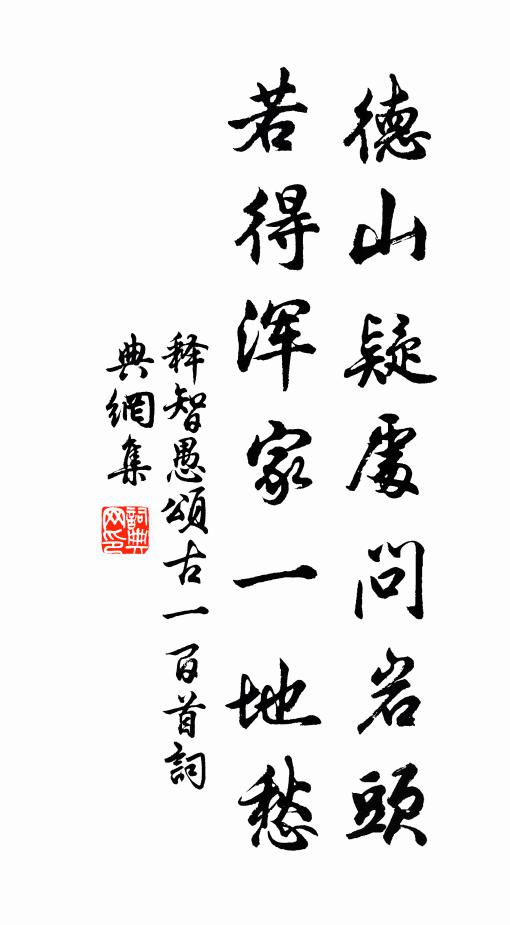 德山疑處問岩頭
若得浑家一地愁
释智愚頌古一百首詞
典網集
詞典
网印